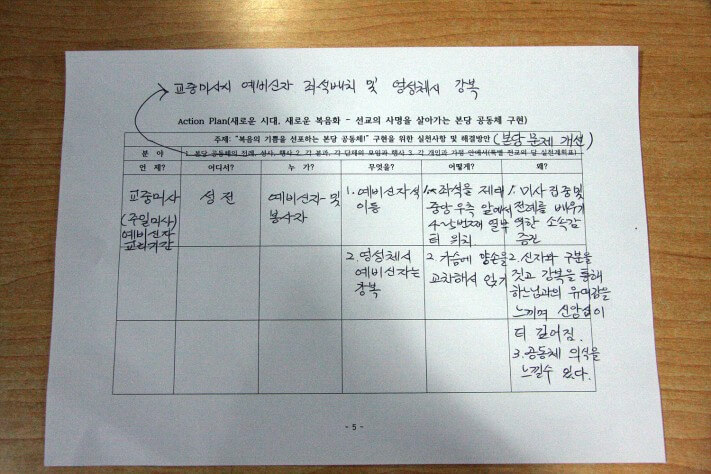 교중미사시 예비신자 좌석배치 및 영성체시 강복
Action Plan(새로운 시대, 새로운 복음화 – 선교의 사명을 살아가는 본당 공동체 구현)
주제: "복음의 기쁨을 선포하는 본당 공동체!" 구현을 위한 실천사항 및 해결방안 (본당 문제 개선)
분 야
1. 본당 공동체의 전례, 성사, 행사 2. 각 분과, 각 단체의 모임과 행사 3. 각 개인과 가정 안에서(특별 전교의 달 실천계획표)
언 제? 어디서? 누 가? 무엇을? 어떻게? 왜?
교중미사
(주일미사)
예비신자
교리기간
성전
예비신자 및
봉사자
1. 예비신자석
이동
좌석을 제대
중앙 우측 앞에서
4~5번째 열부
터 위치
1. 미사 집중 및
전례를 배우기
위한 소속감
증진
2. 영성체시
예비신자는
강복
2. 가슴에 양손을
교차해서 얹기
2. 신자와 구분을
짓고 강복을 통해
하느님과의 유대감을
느끼며 신앙심이
더 깊어짐.
3. 공동체 의식을
느낄수 있다.
- 5 -